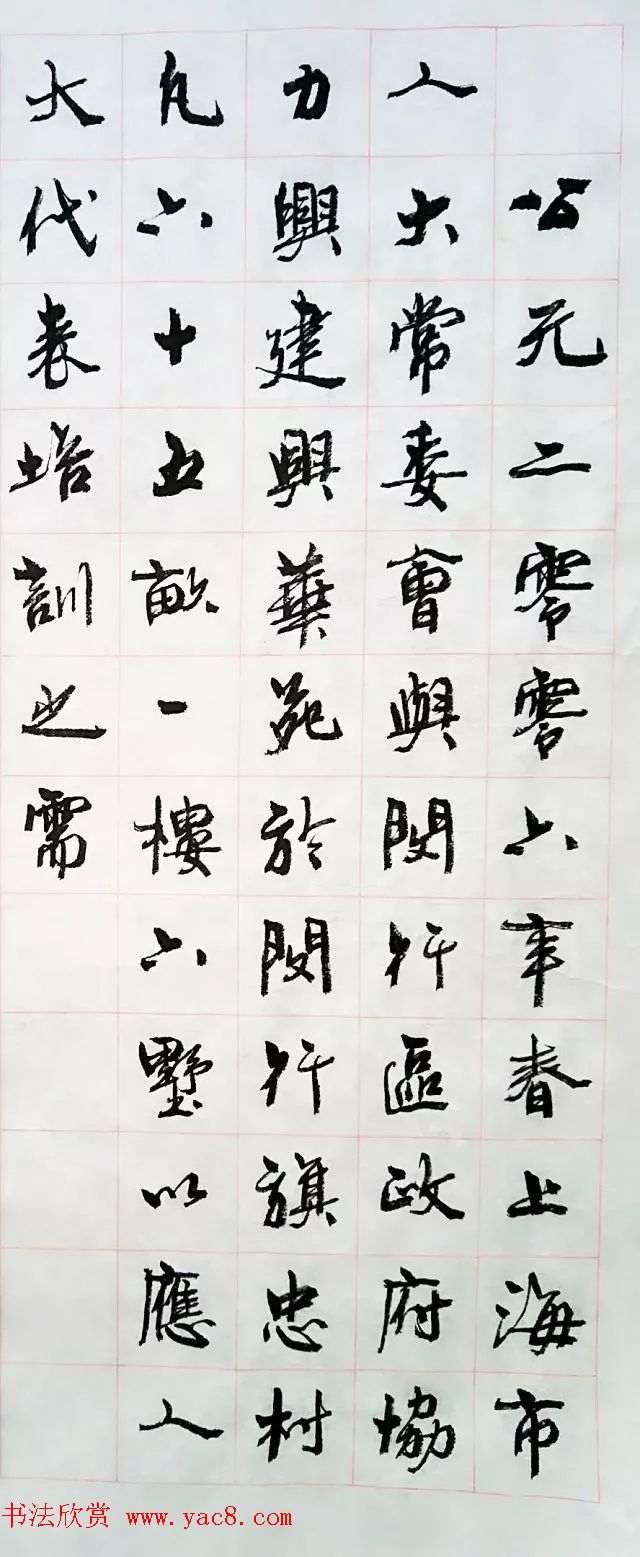 公元二零零六年春上海市
人大常委會與閔行區政府協
力興建興華苑於閔行旗忠村
凡六十五畝一樓六墅以應人
大代表培訓之需
书法欣赏 www.yac8.com